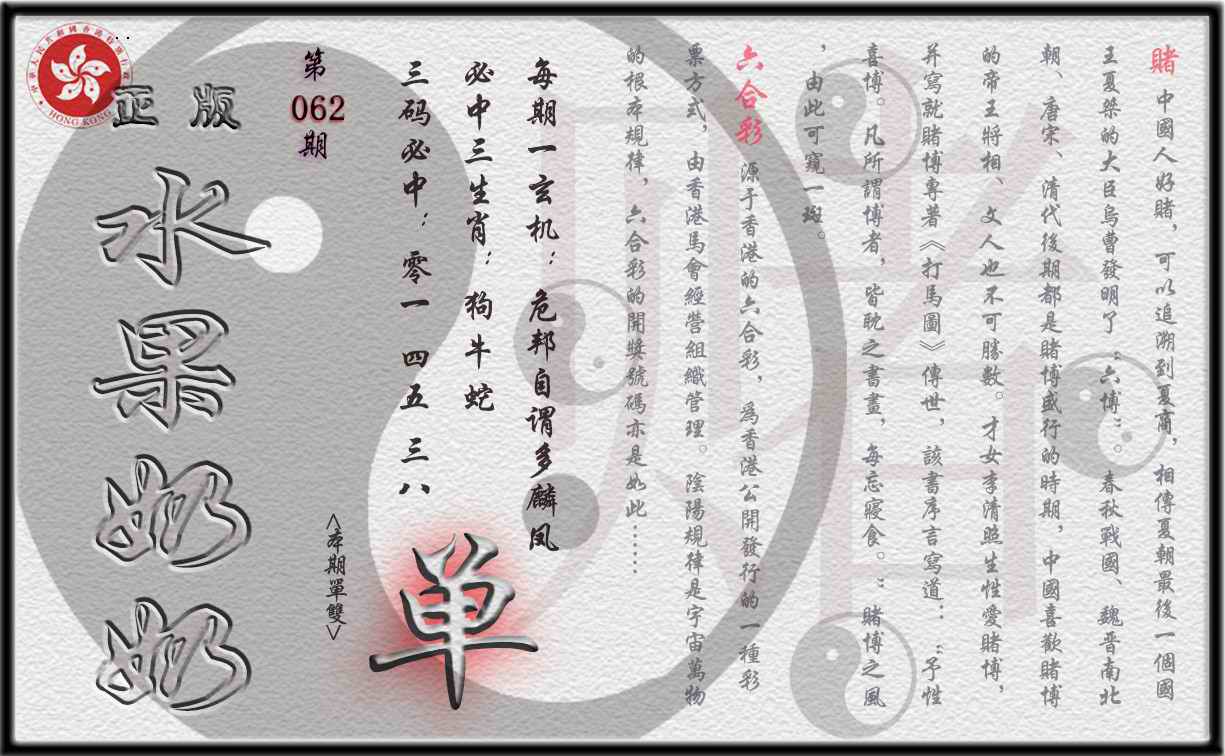 賭 中國人好賭，可以追溯到夏商，相傳夏朝最後一個國
王夏桀的大臣烏曹發明了“六博”。春秋戰國、魏晉南北
朝、唐宋、清代後期都是賭博盛行的時期，中國喜歡賭博
的帝王將相、文人也不可勝數。才女李清照生性愛賭博，
并寫就賭博專著《打馬圖》傳世，該書序言寫道：“予性
喜博。凡所謂博者，皆耽之書畫，每忘寢食。”賭博之風
，由此可窺一斑。
六合彩 源于香港的六合彩，爲香港公開發行的一種彩
票方式，由香港馬會經營組織管理。陰陽規律是宇宙萬物
的根本規律，六合彩的開獎號碼亦是如此……
每期一玄机：危邦自谓多麟凤
必中三生肖：狗牛蛇
三码必中：零一 四五 三八
单
<本期單雙>
第062期
正版
水果奶奶
中華人民共和國香港特別行政區
HONG KONG